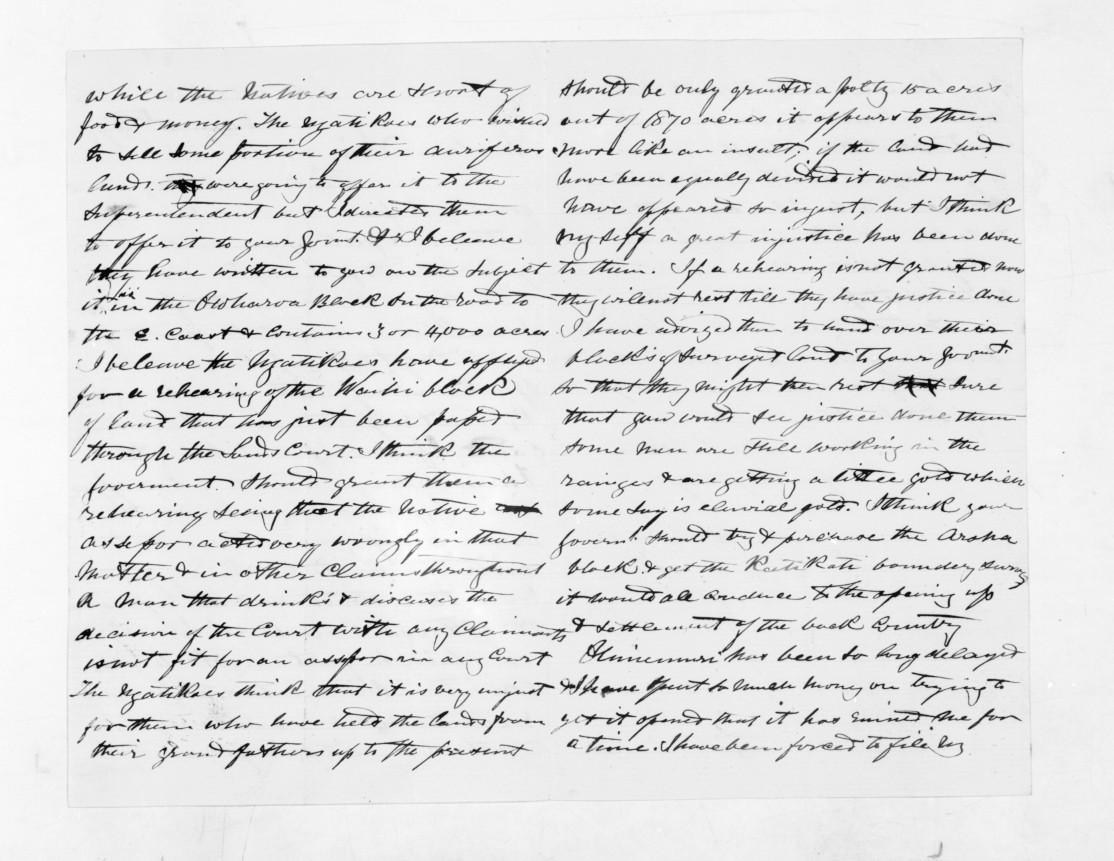 while the Natives are short of
food & money. The Ngatikoes who wished
to sell some portion of their auriferos
lands. were going to offer it to the
Superentendent but I directed them
to offer it to your Govmt. & I beleave
they have written to you on the subject
it is in the Owharoa Block on the road to
the E. Coast & contains 3 or 4,000 acres
I beleave the Ngatikoes have applied
for a rehearing of the Waihi block
of land that has just been passed
through the Lands Court. I think the
Goverment should grant them a
rehearing seeing that the Native
assessor acted very wrongly in that
matter & in other Claims throughout
A man that drink's & discuses the
decision of the Court with any Claimants
is not fit for an assessor in any Court
The Ngatikoes think that it is very unjust
for them who have held the lands from
their grand fathers up to the present
should be only granted a polty 15 acres
out of 1870 acres it appears to them
more like an insult, if the land had
have been equally divided it would not
have appeared so injust, but I think
my self a great injustice has been done
to them. If a rehearing is not granted now
they will not rest till they have justice done
I have advized them to hand over their
block's of surveyed land to your Govmt.
so that they might then rest sure
that you would see justice done them
some men are still working in the
ranges & are getting a little gold which
some say is eluvial gold. I think your
Governt. should try & perchase the Aroha
block. & get the Katikati boundery survey
it would all conduce to the opening up
& settlement of the back Country
Ohinemuri has been so long delayed
& I have spent so much money on trying to
get it opened that it has ruined me for
a time. I have been forced to file my